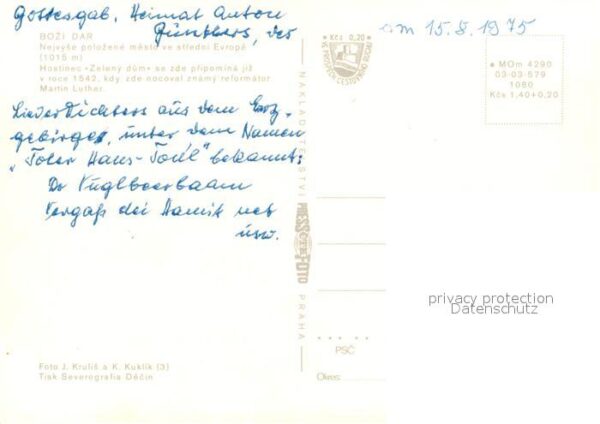 Gottesgab, Heimat Anton
Günthers, des
am 15.8.1975
BOŽÍ DAR
Nejvýše položené město ve střední Evropě
(1015 m)
Hostinec »Zelený dům« se zde připomíná již
v roce 1542, kdy zde nocoval známý reformátor
Martin Luther.
Liederdichters aus dem Erz-
gebirge, unter dem Namen
„Toler Hans-Tonl" bekannt:
Dr Vuglbeerbaam
Vergaß dei Hamit net
usw.
Foto J. Kruliš a K. Kuklík (3)
Tisk Severografia Děčín
NAKLADATELSTVÍ
PRESSFOTO
PRAHA
Kčs 0,20
MOm 4290
03-03-579
1080
Kčs 1,40+0,20
PSČ
Okres:
privacy protection
Datenschutz